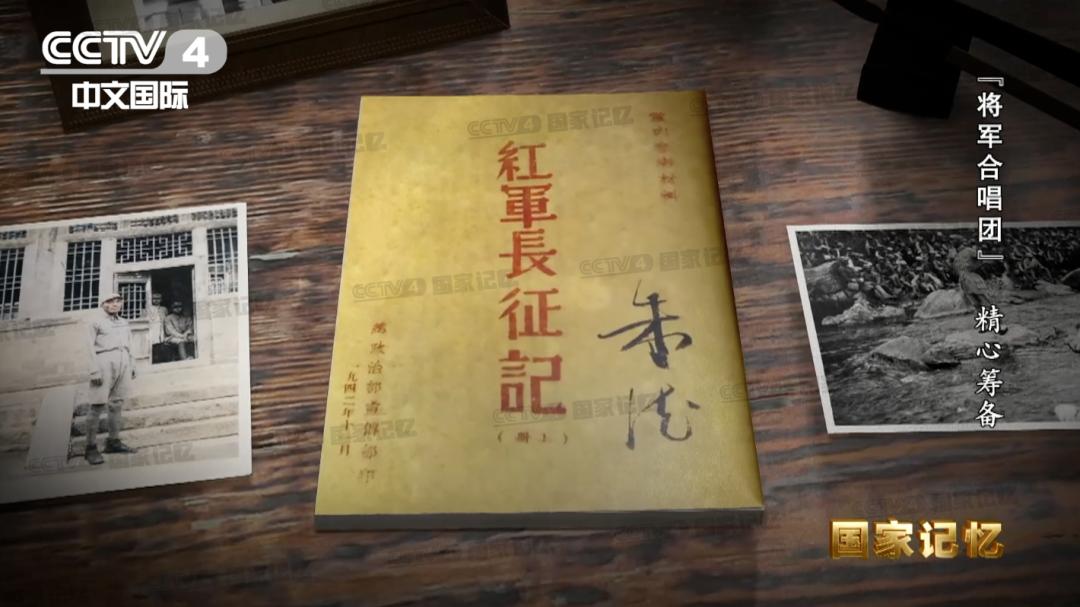 CCTV 4
中文国际
『将军合唱团』 精心筹备
党内参考材料
紅軍長征記
(上册)
朱德
总政治部宣傳部印
一九四二年十一月
国家记忆
CCTV4 国家记忆